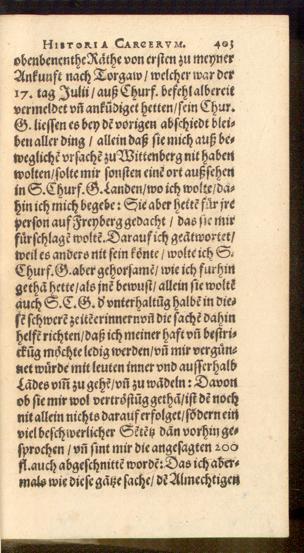 HISTORIA CARCERVM. 403
obenbenenthe Räthe von ersten zu meyner
Ankunft nach Torgaw / welcher war der
17. tag Julii / auß Churf. befehl albereit
vermeldet vñ ankũdiget hetten / sein Chur.
G. liessen es bey dẽ vorigen abschiedt blei-
ben aller ding / allein daß sie mich auß be-
weglichẽ vrsachẽ zu Wittenberg nit haben
wolten / solte mir sonsten einẽ ort außsehen
in S. Churf. G. Landen / wo ich wolte / da-
hin ich mich begebe: Sie aber heitẽ für jre
person auf Freyberg gedacht / das sie mir
fürschlagẽ woltẽ. Darauf ich geãtwortet /
weil es anders nit sein kõnte / wolte ich S.
Churf. G. aber gehorsamẽ / wie ich furhin
gethã hette / als jnẽ bewust / allein sie woltẽ
auch S. C. G. d vnterhaltũg halbẽ in die-
sẽ schwerẽ zeitẽ erinnern vñ die sachẽ dahin
helfẽ richten / daß ich meiner haft vñ bestri-
ckũg möchte ledig werden / vñ mir vergün-
net würde mit leuten inner vnd ausserhalb
Lãdes vm̃ zu gehẽ / vñ zu wãdeln: Davon
ob sie mir wol vertröstũg gethã / ist dẽ noch
nit allein nichts darauf erfolget / sõdern ein
viel beschwerlicher Sẽtẽtz dãn vorhin ge-
sprochen / vñ sint mir die angesagten 200
fl. auch abgeschnittẽ wordẽ: Das ich aber-
mals wie diese gãtze sache / dẽ Almechtigen